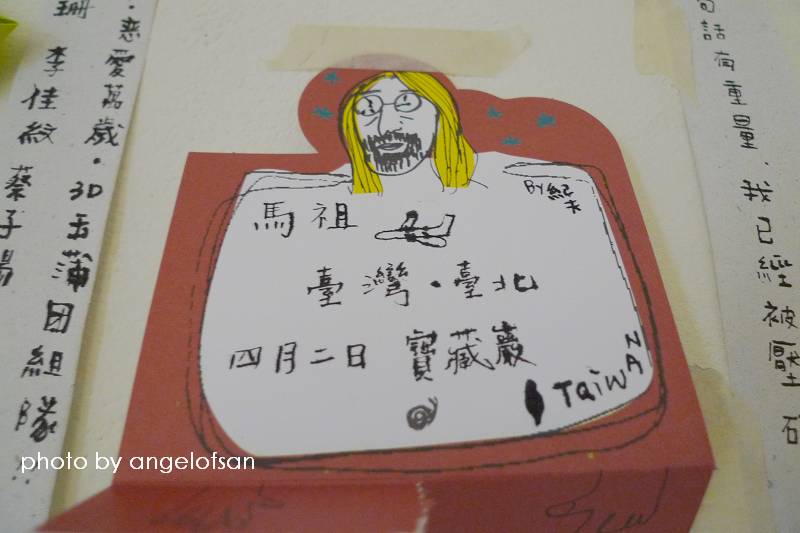 馬祖
BY 紀
臺灣・臺北
四月二日 寶藏巖
TaiwAN
・戀愛萬歲・3D
李佳紋
蔡子
团組隊
句話有重量、我已經被壓
photo by angelofsan